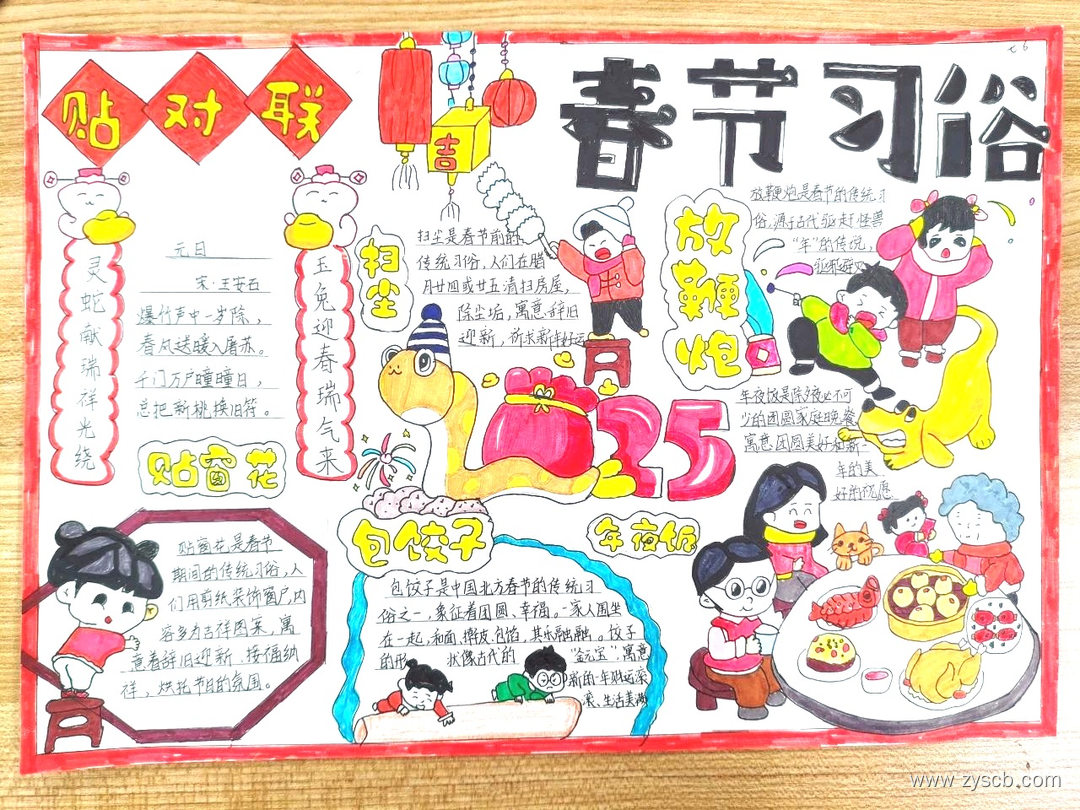 春节习俗
贴对联
吉
灵蛇献瑞祥光绕
玉兔迎春瑞气来
元日
宋·王安石
爆竹声中一岁除，
春风送暖入屠苏。
千门万户曈曈日，
总把新桃换旧符。
扫尘
扫尘是春节前的
传统习俗，人们在腊
月廿四或廿五清扫房屋，
除尘垢，寓意辞旧
迎新，祈求新年好运
放鞭炮
放鞭炮是春节的传统习
俗，源于古代驱赶怪兽
“年”的传说，
驱邪避凶
25
贴窗花
贴窗花是春节
期间的传统习俗，人
们用剪纸装饰窗户，内
容多为吉祥图案，寓
意着辞旧迎新、接福纳
祥，烘托节日的氛围。
包饺子
包饺子是中国北方春节的传统习
俗之一，象征着团圆、幸福。一家人围坐
在一起，和面、擀皮、包馅，其乐融融。饺子
的形状像古代的“金元宝”，寓意
新的一年财运滚
滚、生活美满
年夜饭
年夜饭是除夕夜必不可
少的团圆家庭晚餐
寓意团圆美好和新一
年的美
好的祝愿
www.zyscb.com